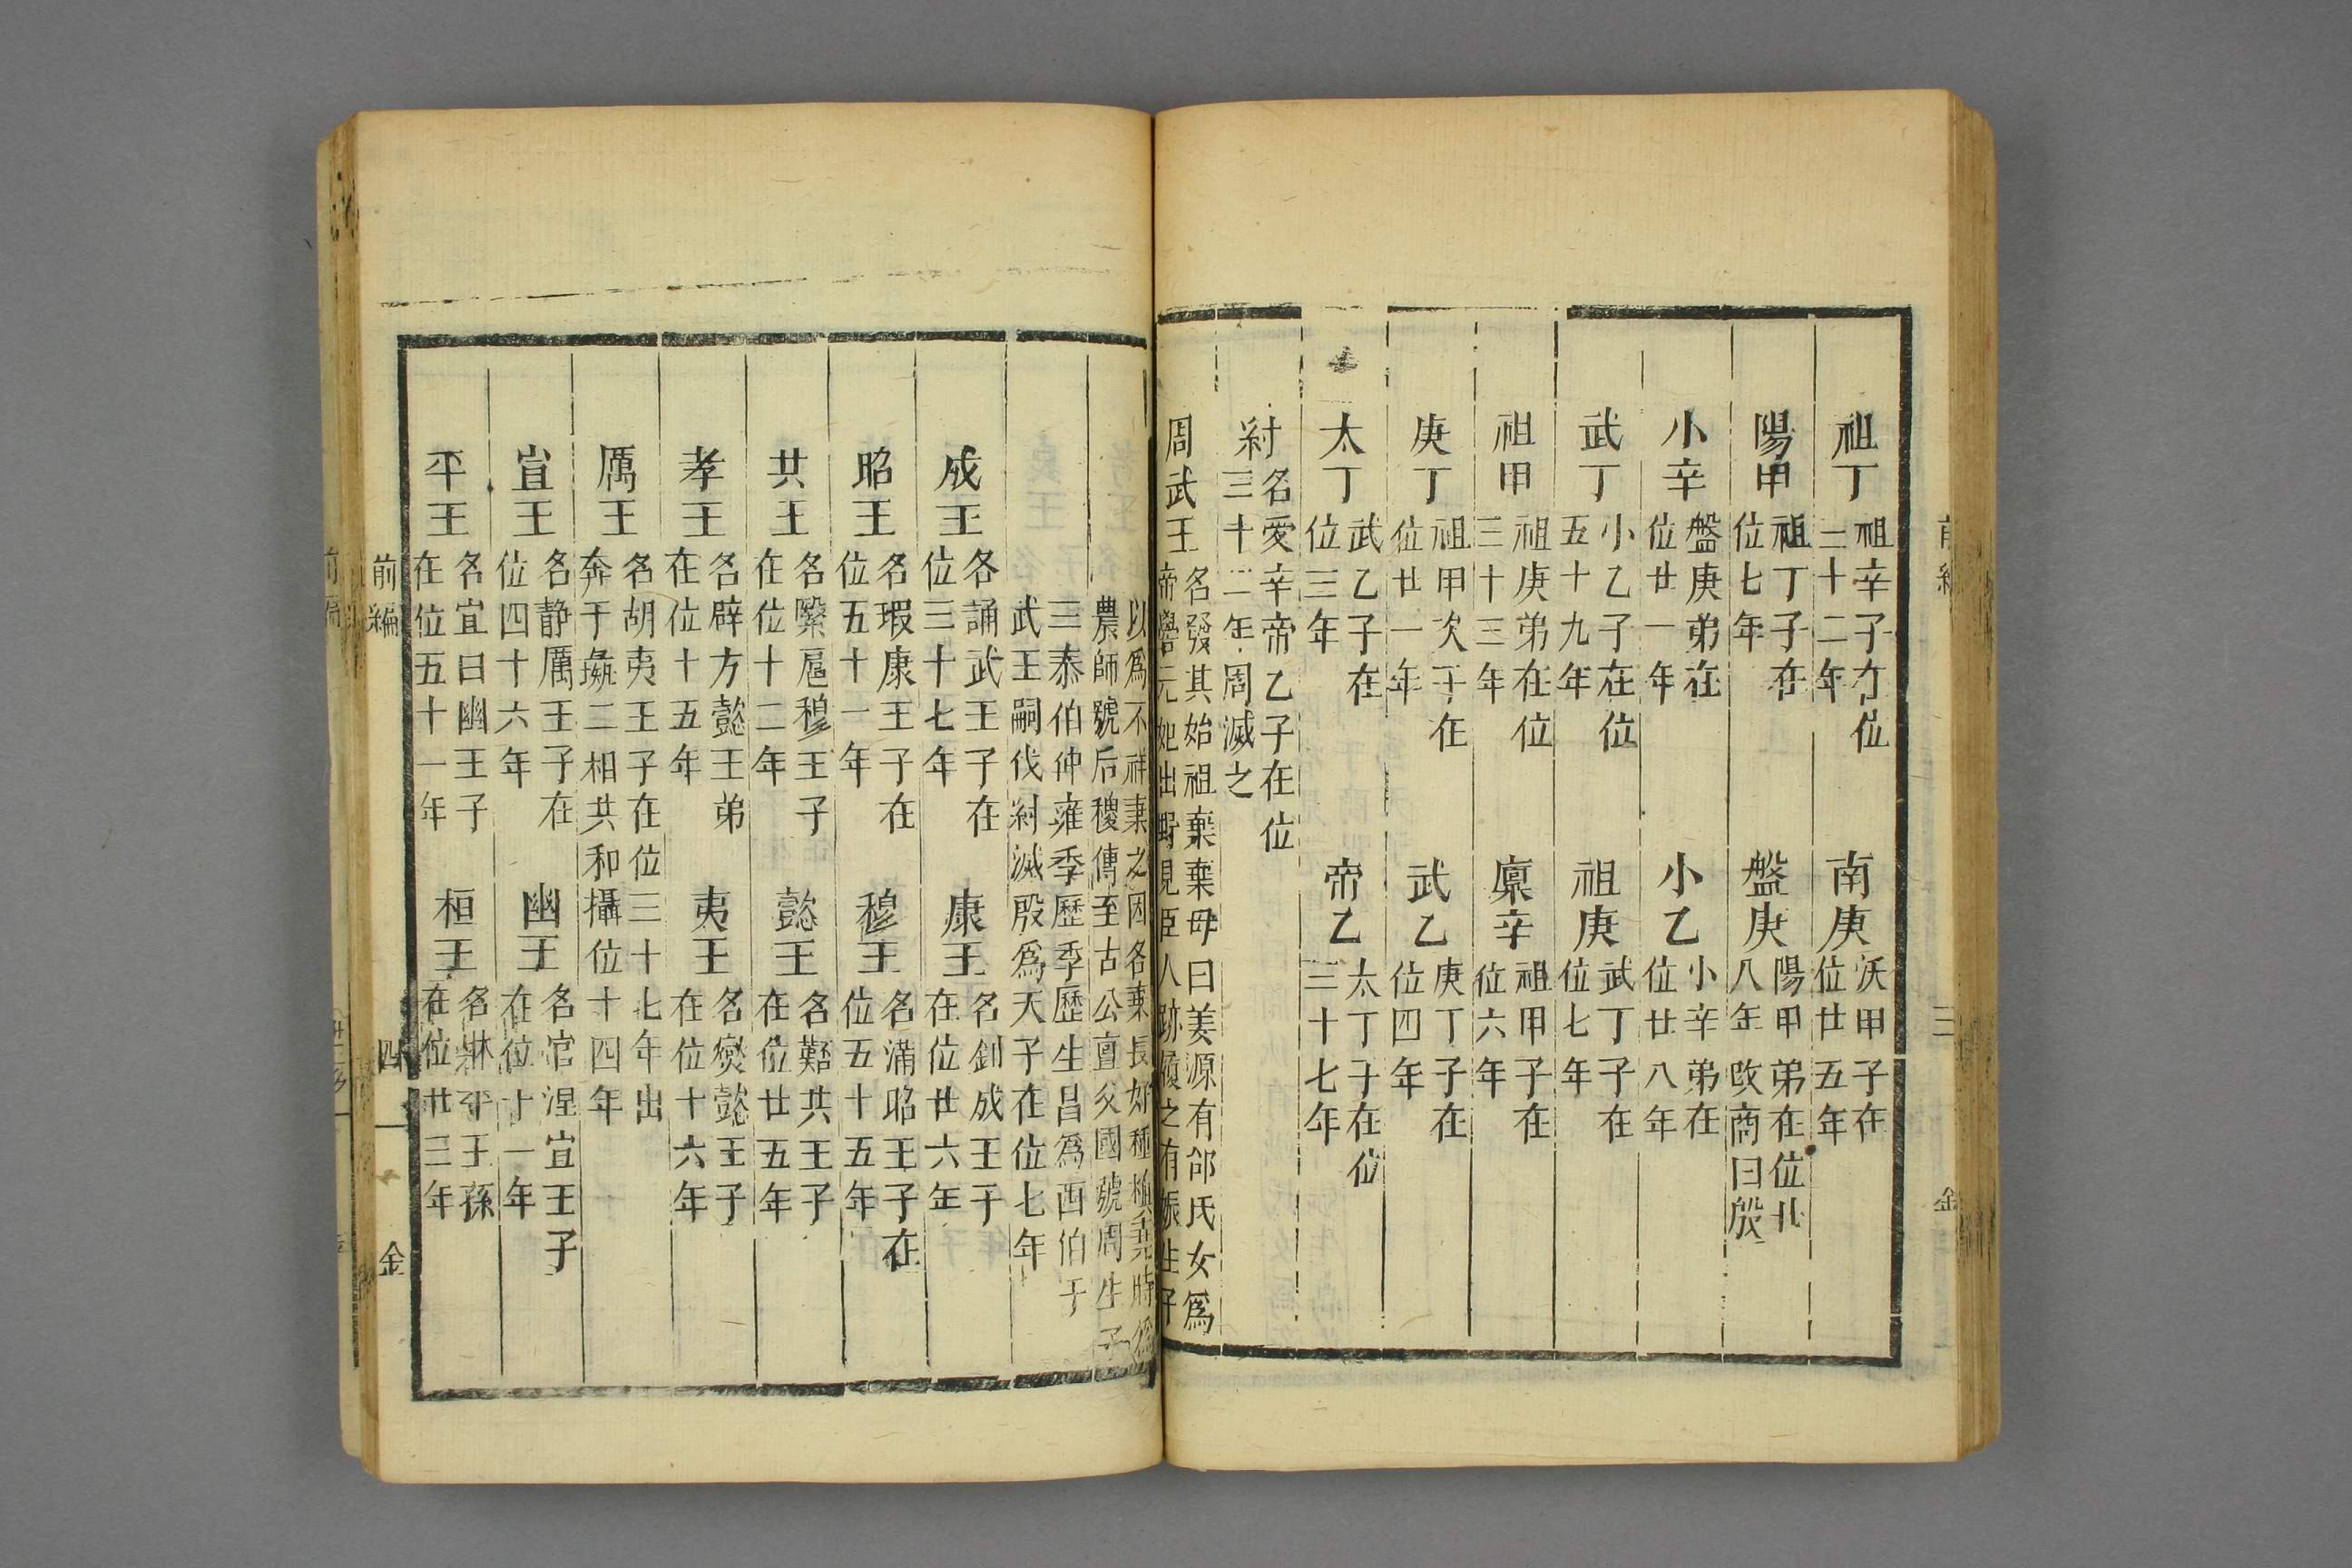 祖丁祖辛子在位三十二年
南庚沃甲子在位廿五年
陽甲祖丁子在位七年
盤庚陽甲弟在位廿八年改商曰殷
小辛盤庚弟在位廿一年
小乙小辛弟在位廿八年
武丁小乙子在位五十九年
祖庚武丁子在位七年
祖甲祖庚弟在位三十三年
廩辛祖甲子在位六年
庚丁祖甲次子在位廿一年
武乙庚丁子在位四年
太丁武乙子在位三年
帝乙太丁子在位三十七年
紂名受辛帝乙子在位三十二年周滅之
周武王名發其始祖棄棄母曰姜源有邰氏女爲
帝嚳元妃出野見巨人跡履之有娠生子
以爲不祥棄之因名棄長好種植堯時爲
農師號后稷傳至古公亶父國號周生子
三泰伯仲雍季歷季歷生昌爲西伯子
武王嗣伐紂滅殷爲天子在位七年
成王名誦武王子在位三十七年
康王名釗成王子在位廿六年
昭王名瑕康王子在位五十一年
穆王名滿昭王子在位五十五年
共王名緊扈穆王子在位十二年
懿王名囏共王子在位廿五年
孝王名辟方懿王弟在位十五年
夷王名燮懿王子在位十六年
厲王名胡夷王子在位三十七年出奔于彘二相共和攝位十四年
宣王名静厲王子在位四十六年
幽王名宮涅宣王子在位十一年
平王名宜曰幽王子在位五十一年
桓王名林平王孫在位廿三年
前編 四 金